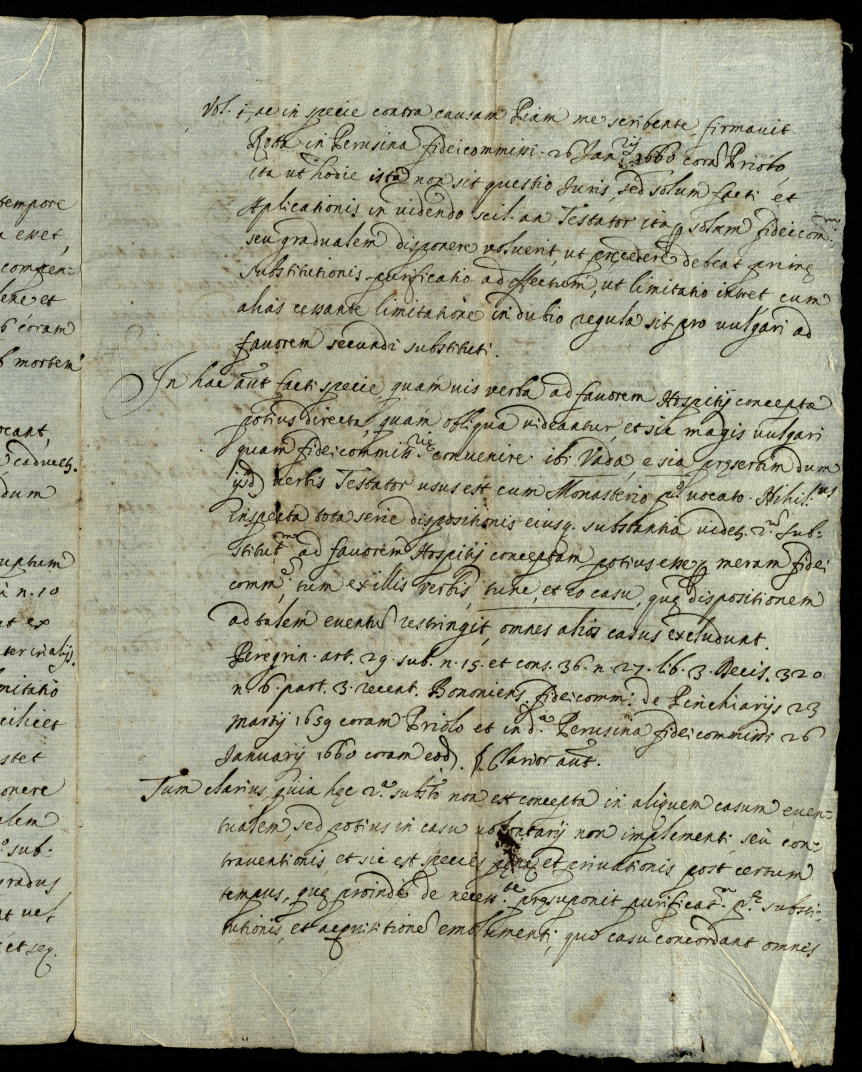 tempore
a esset,
compen-
lere et
6 coram
b mortem
ocant,
caducet.
dum
uptum
n. 10
at ex
ter in alijs.
mitatio
scilicet
stet
onere
alem
sub-
gradus
at vel
et seq.
Vol. i, ac in specie contra causam Piam me scribente firmavit
Rota in Perusina fideicommissi 26 Jan.rij 1660 corā Priolo,
ita ut hodie ista non sit questio Juris, sed solum facti et
Aplicationis in videndo scil. an Testator ita p solum fideicom.m
seu gradualem disponere voluerit, ut precedere debeat primę
substitutionis purificatio ad effectum, ut limitatio intret cum
alias cessante limitatione in dubio regula sit pro vulgari ad
favorem secundi substituti.
In hac aūt facti specie, quamvis verba ad favorem Hospitij concepta
potius directa, quam obliqua videantur, et sic magis vulgari
quam fideicommiss.rię convenire ibi Vada, e sia pręsertim dum
ijsd. verbis Testator usus est cum Monasterio p.o vocato. Nihil.us
inspecta tota serie dispositionis eiusq. substantia videt. 2.am sub-
stitut.nem ad favorem Hospitij conceptam potius esse p meram fidei
comm., tum ex illis verbis, tunc, et eo casu, quę dispositionem
ad talem eventū restringit, omnes alios casus excludunt.
Peregrin. art. 29. sub. n. 15. et cons. 36. n. 27. lib. 3. Decis. 320
n. 6. part. 3. recent. Bononiens. fideicomm. de Pinchiarijs 23
Martij 1659 coram Priolo et in d.a Perusina fideicommissi 26
Januarij 1660 coram eod. § Clarior aūt.
Tum clarius quia hęc 2.a subst.o non est concepta in aliquem casum even-
tualem, sed potius in casu voluntarij non implementi seu con-
traventionis, et sic est species pęnę et privationis post certum
tempus, quę proinde de necess.te pręsuponit purificat.m p.ę substi-
tutionis, et acquisitionē emolumenti, quo casu concordant omnes